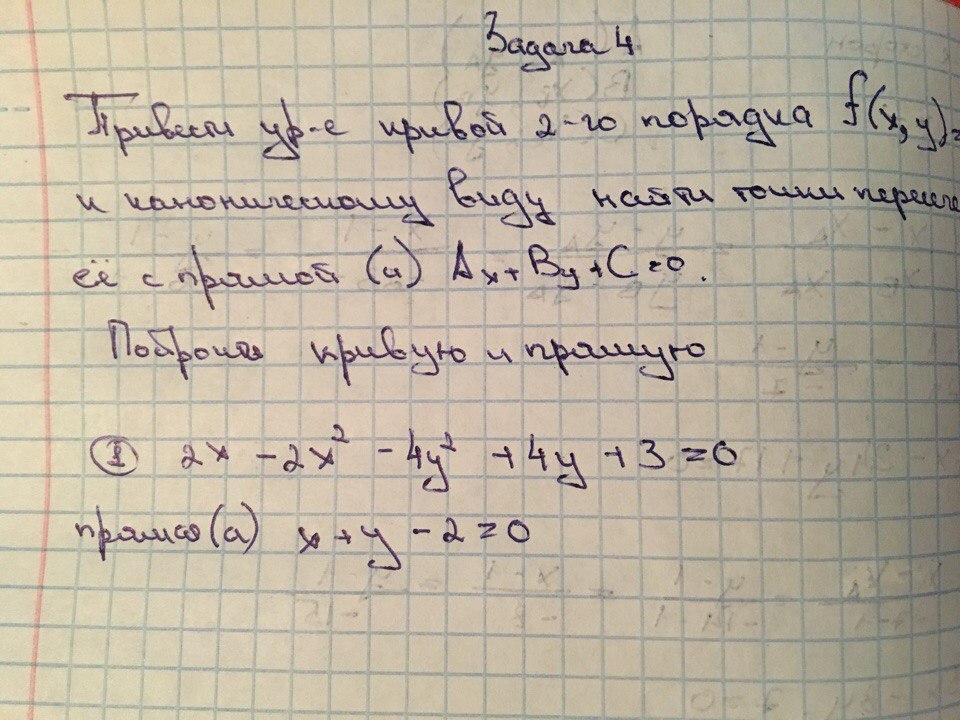 Задача 4
Привести ур-е кривой 2-го порядка f(x,y)=
к каноническому виду найти точки пересече
её с прямой (a) Ax+By+C=0.
Построить кривую и прямую
① 2x - 2x² - 4y² + 4y + 3 = 0
прямая (a) x + y - 2 = 0